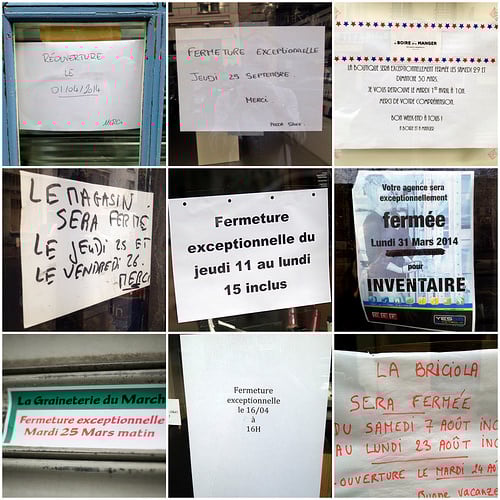 RÉOUVERTURE
LE
01/04/2014
MERCI
FERMETURE EXCEPTIONNELLE
JEUDI 25 SEPTEMBRE.
MERCI
A BOIRE ET A MANGER
LA BOUTIQUE SERA EXCEPTIONNELLEMENT FERMEE LES SAMEDI 29 ET
DIMANCHE 30 MARS.
JE VOUS RETROUVE LE MARDI 1ER AVRIL A 10H.
MERCI DE VOTRE COMPREHENSION.
BON WEEK END A TOUS !
A BOIRE ET A MANGER
LE MAGASIN
SERA FERME
LE JEUDI 25 ET
LE VENDREDI 26.
MERCI
Fermeture
exceptionnelle du
jeudi 11 au lundi
15 inclus
Votre agence sera
exceptionnellement
fermée
Lundi 31 Mars 2014
pour
INVENTAIRE
YES
La Graineterie du March
Fermeture exceptionnelle
Mardi 25 Mars matin
Fermeture
exceptionnelle
le 16/04
à
16H
LA BRICIOLA
SERA FERMÉE
DU SAMEDI 7 AOÛT INC
AU LUNDI 23 AOÛT INC
OUVERTURE LE MARDI 24 AO
BONNE VACANZE